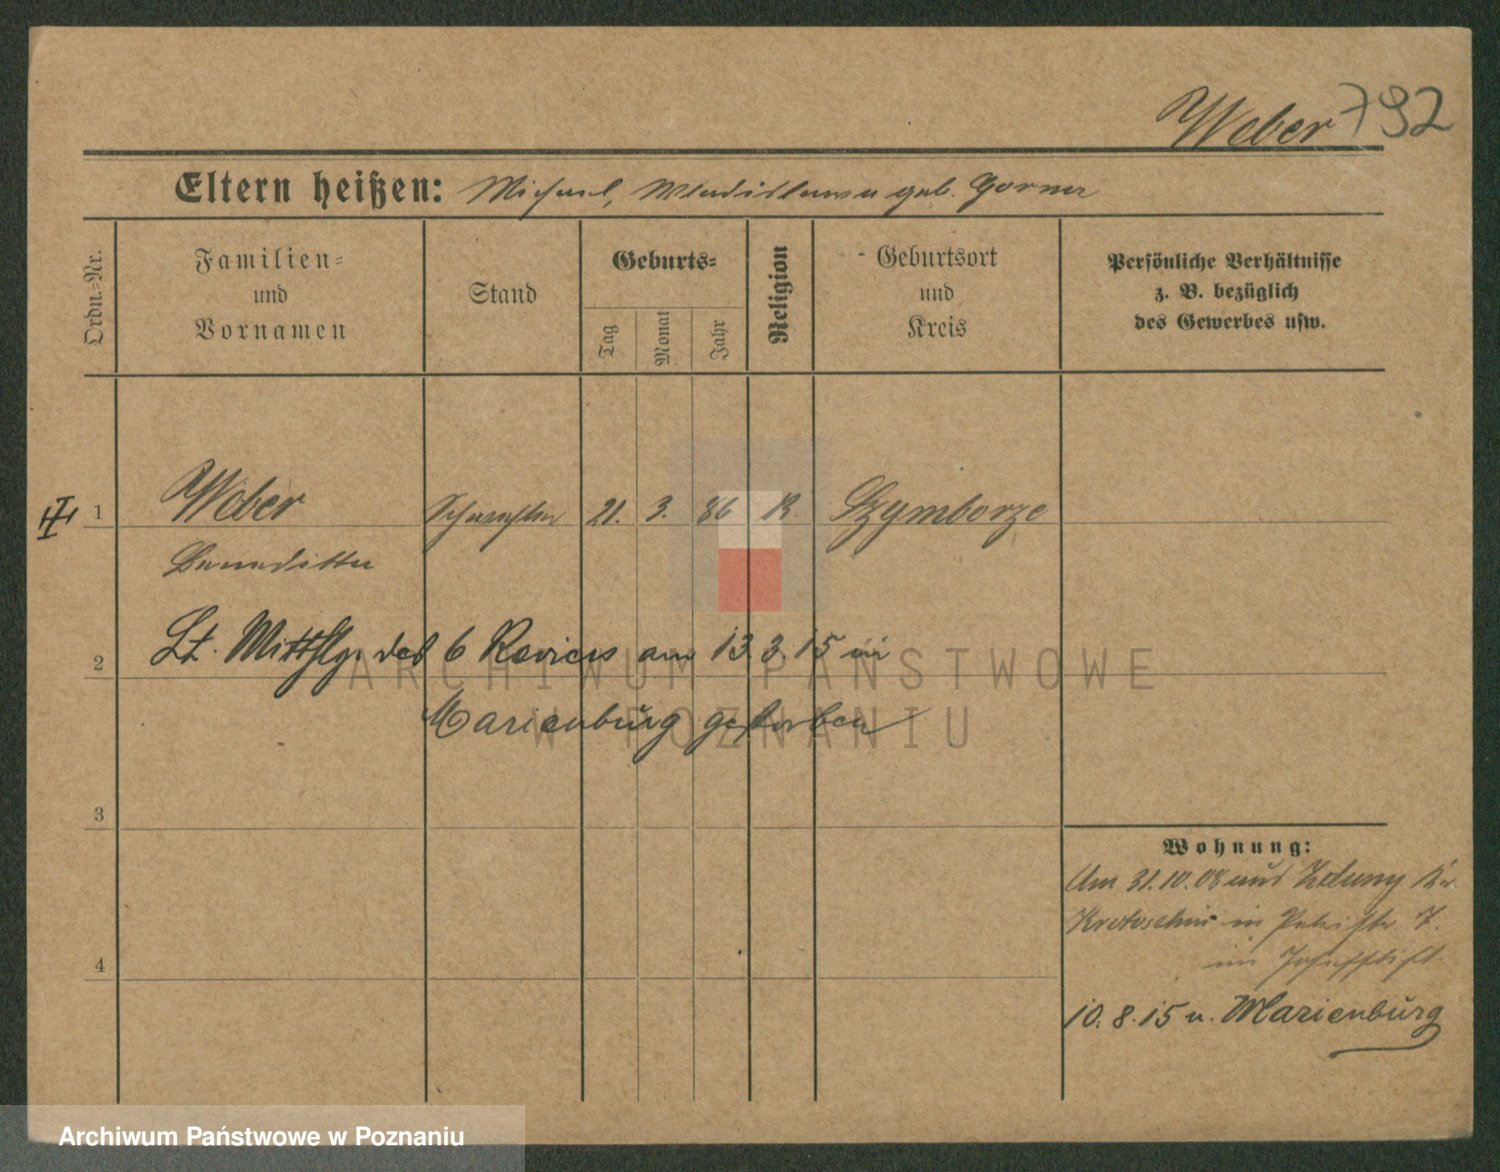 Weber 792
Eltern heißen: Michael, Wladislawa geb. Gorna
Ordn.-Nr.
Familien-
und
Vornamen
Stand
Geburts-
Tag
Monat
Jahr
Religion
Geburtsort
und
Kreis
Persönliche Verhältnisse
z. B. bezüglich
des Gewerbes usw.
1 Weber 21. 3. 86 K. Szymborze
Benedikta
2 Lt. Mittlg. des 6 Reviers am 13.3.15 in
Marienburg gestorben
3
4
Wohnung:
Am 31.10.08 aus Zduny Kr.
Krotoschin in 7.
im Josefstift
10.8.15 n. Marienburg
ARCHIWUM PAŃSTWOWE
W POZNANIU
Archiwum Państwowe w Poznaniu